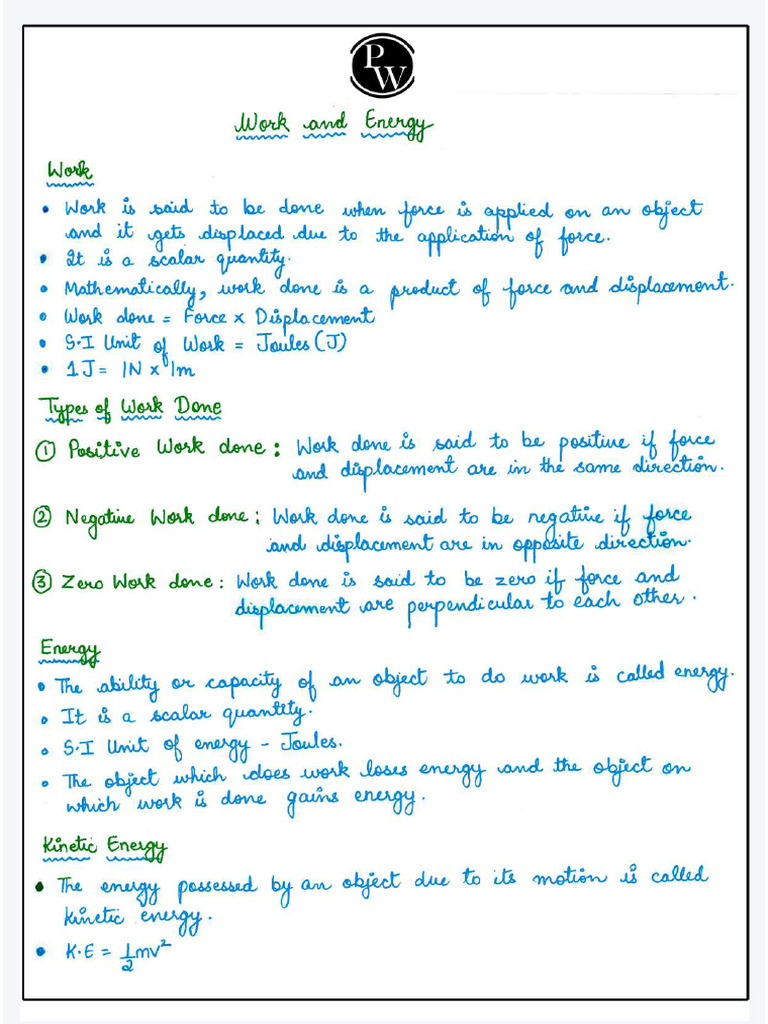 PW
Work and Energy
Work
• Work is said to be done when force is applied on an object
and it gets displaced due to the application of force.
• It is a scalar quantity.
• Mathematically, work done is a product of force and displacement.
• Work done = Force × Displacement
• S.I Unit of Work = Joules (J)
• 1J = 1N × 1m
Types of Work Done
① Positive Work done : Work done is said to be positive if force
and displacement are in the same direction.
② Negative Work done : Work done is said to be negative if force
and displacement are in opposite direction.
③ Zero Work done : Work done is said to be zero if force and
displacement are perpendicular to each other.
Energy
• The ability or capacity of an object to do work is called energy.
• It is a scalar quantity.
• S.I Unit of energy - Joules.
• The object which does work loses energy and the object on
which work is done gains energy.
Kinetic Energy
• The energy possessed by an object due to its motion is called
kinetic energy.
• K.E = 1/2 mv²